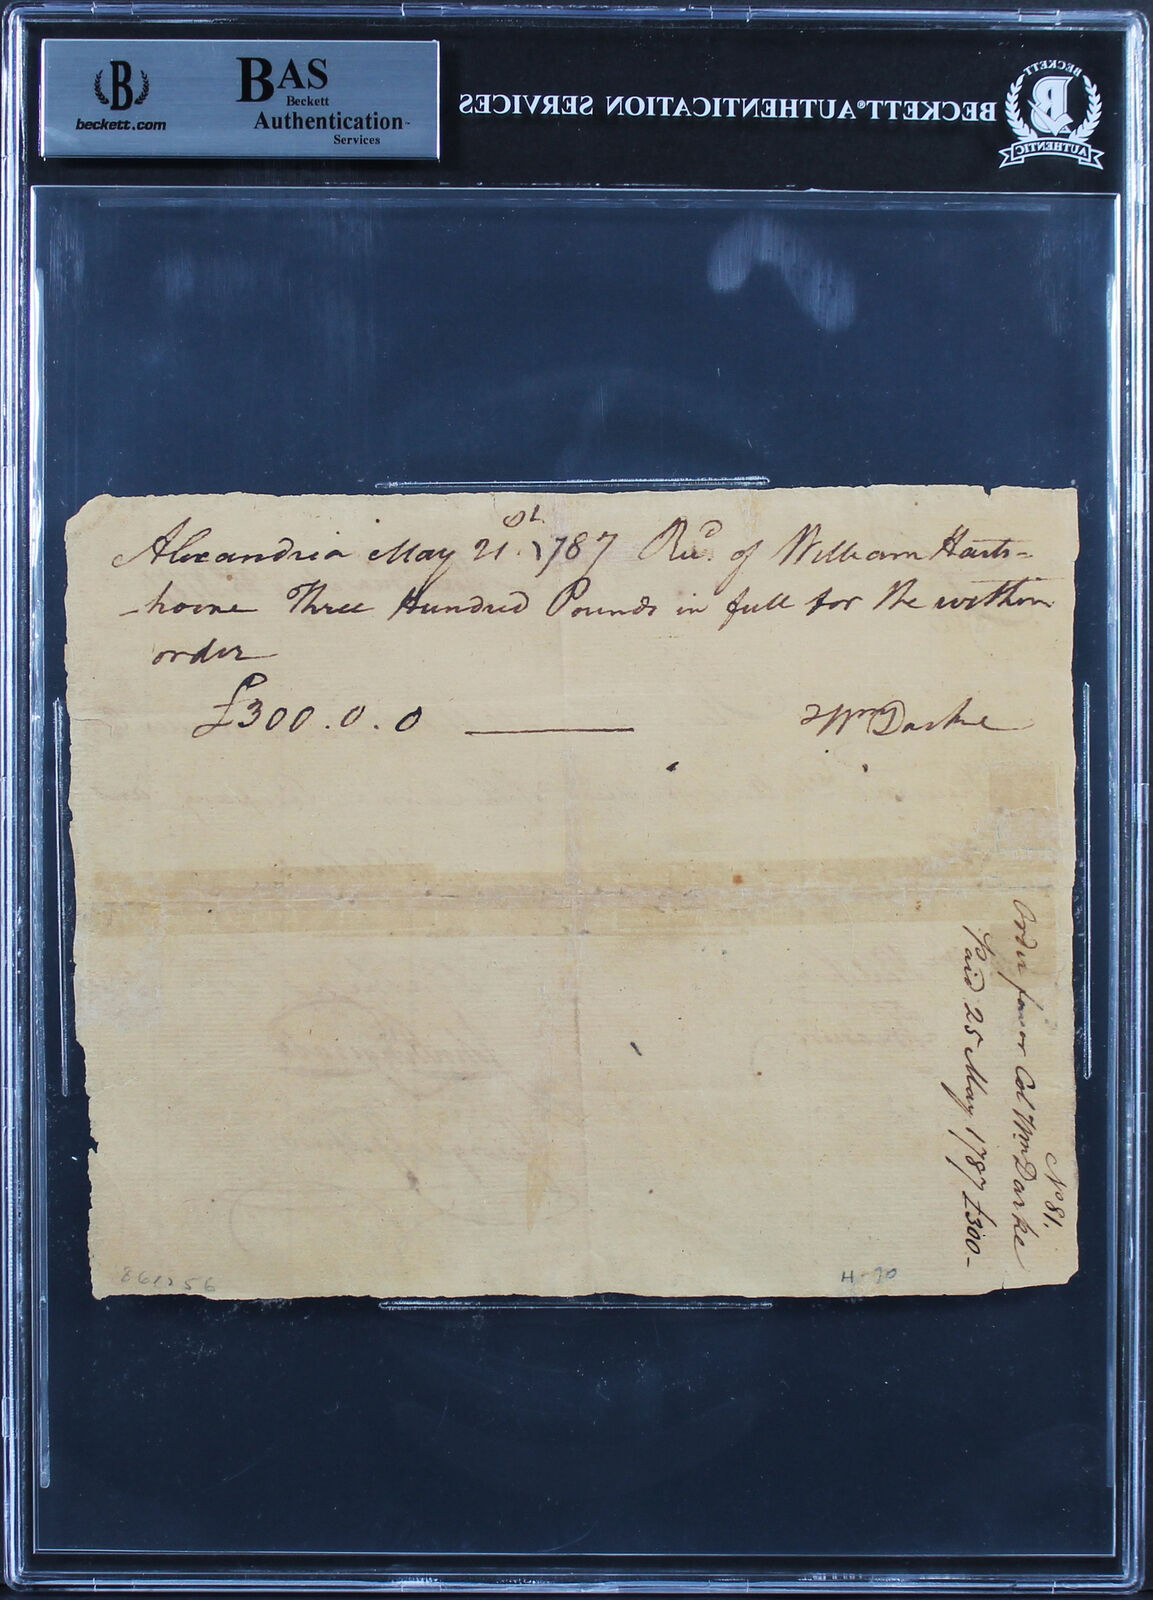 B
beckett.com
BAS
Beckett
Authentication
Services
BECKETT® AUTHENTICATION SERVICES
BECKETT
B
AUTHENTIC
Alexandria May 21st. 1787 Recd. of William Harts-
horne Three Hundred Pounds in full for the within
order
£300.0.0
Wm Darke
No 81.
Order favor Col Wm Darke
Paid 25 May 1787 £300-
H-70